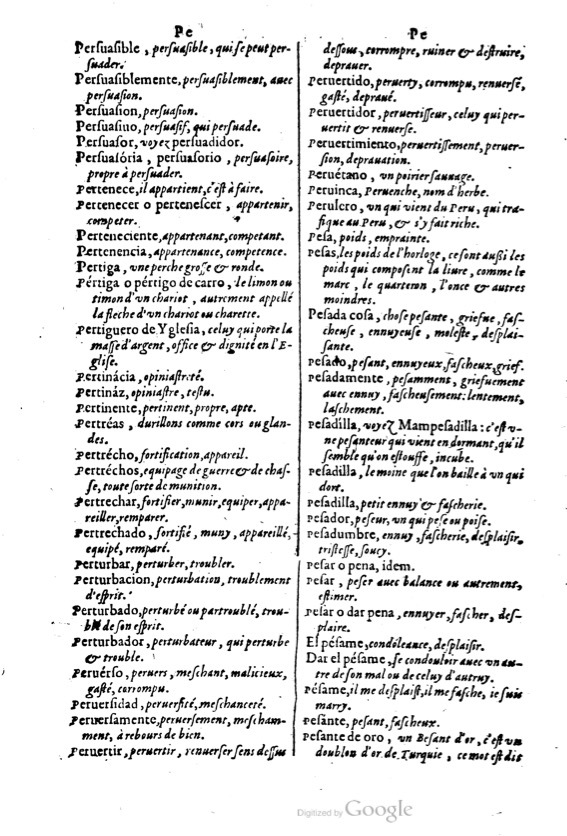 Pe
Persuasible, persuasible, qui se peut per-
suader.
Persuasiblemente, persuasiblement, auec
persuasion.
Persuasion, persuasion.
Persuasiuo, persuasif, qui persuade.
Persuasor, voyez persuadidor.
Persuasória, persuasorio, persuasoire,
propre à persuader.
Pertenece, il appartient, c'est à faire.
Pertenecer o pertenescer, appartenir,
competer.
Perteneciente, appartenant, competant.
Pertenencia, appartenance, competence.
Pertiga, vne perche grosse & ronde.
Pértiga o pértigo de carro, le limon ou
timon d'vn chariot, autrement appellé
la fleche d'vn chariot ou charette.
Pertiguero de Yglesia, celuy qui porte la
masse d'argent, office & dignité en l'E-
glise.
Pertinácia, opiniastreté.
Pertináz, opiniastre, testu.
Pertinente, pertinent, propre, apte.
Pertréas, durillons comme cors ou glan-
des.
Pertrécho, fortification, appareil.
Pertréchos, equipage de guerre & de chas-
se, toute sorte de munition.
Pertrechar, fortifier, munir, equiper, appa-
reiller, remparer.
Pertrechado, fortifié, muny, appareillé,
equipé, remparé.
Perturbar, perturber, troubler.
Perturbacion, perturbation, troublement
d'esprit.
Perturbado, perturbé ou partroublé, trou-
blé de son esprit.
Perturbador, perturbateur, qui perturbe
& trouble.
Peruérso, peruers, meschant, malicieux,
gasté, corrompu.
Peruersidad, peruersité, meschanceté.
Peruersamente, peruersement, mescham-
ment, à rebours de bien.
Peruertir, peruertir, renuerser sens dessus
Pe
dessous, corrompre, ruiner & destruire,
deprauer.
Peruertido, peruerty, corrompu, renuersé,
gasté, depraué.
Peruertidor, peruertisseur, celuy qui per-
uertit & renuerse.
Peruertimiento, peruertissement, peruer-
sion, deprauation.
Peruétano, vn poirier sauuage.
Peruinca, Peruenche, nom d'herbe.
Perulero, vn qui vient du Peru, qui tra-
fique au Peru, & s'y fait riche.
Pesa, poids, emprainte.
Pesas, les poids de l'horloge, ce sont aussi les
poids qui composent la liure, comme le
marc, le quarteron, l'once & autres
moindres.
Pesada cosa, chose pesante, griefue, fas-
cheuse, ennuyeuse, moleste, desplai-
sante.
Pesado, pesant, ennuyeux, fascheux, grief.
Pesadamente, pesamment, griefuement
auec ennuy, fascheusement: lentement,
laschement.
Pesadilla, voyez Mampesadilla: c'est v-
ne pesanteur qui vient en dormant, qu'il
semble qu'on estouffe, incube.
Pesadilla, le moine que l'on baille à vn qui
dort.
Pesadilla, petit ennuy & fascherie.
Pesador, peseur, vn qui pese ou poise.
Pesadumbre, ennuy, fascherie, desplaisir,
tristesse, soucy.
Pesar o pena, idem.
Pesar, peser auec balance ou autrement,
estimer.
Pesar o dar pena, ennuyer, fascher, des-
plaire.
El pésame, condoleance, desplaisir.
Dar el pésame, se condouloir auec vn au-
tre de son mal ou de celuy d'autruy.
Pésame, il me desplaist, il me fasche, ie suis
marry.
Pesánte, pesant, fascheux.
Pesante de oro, vn Besant d'or, c'est vn
doublon d'or de Turquie, ce mot est dit
Digitized by Google